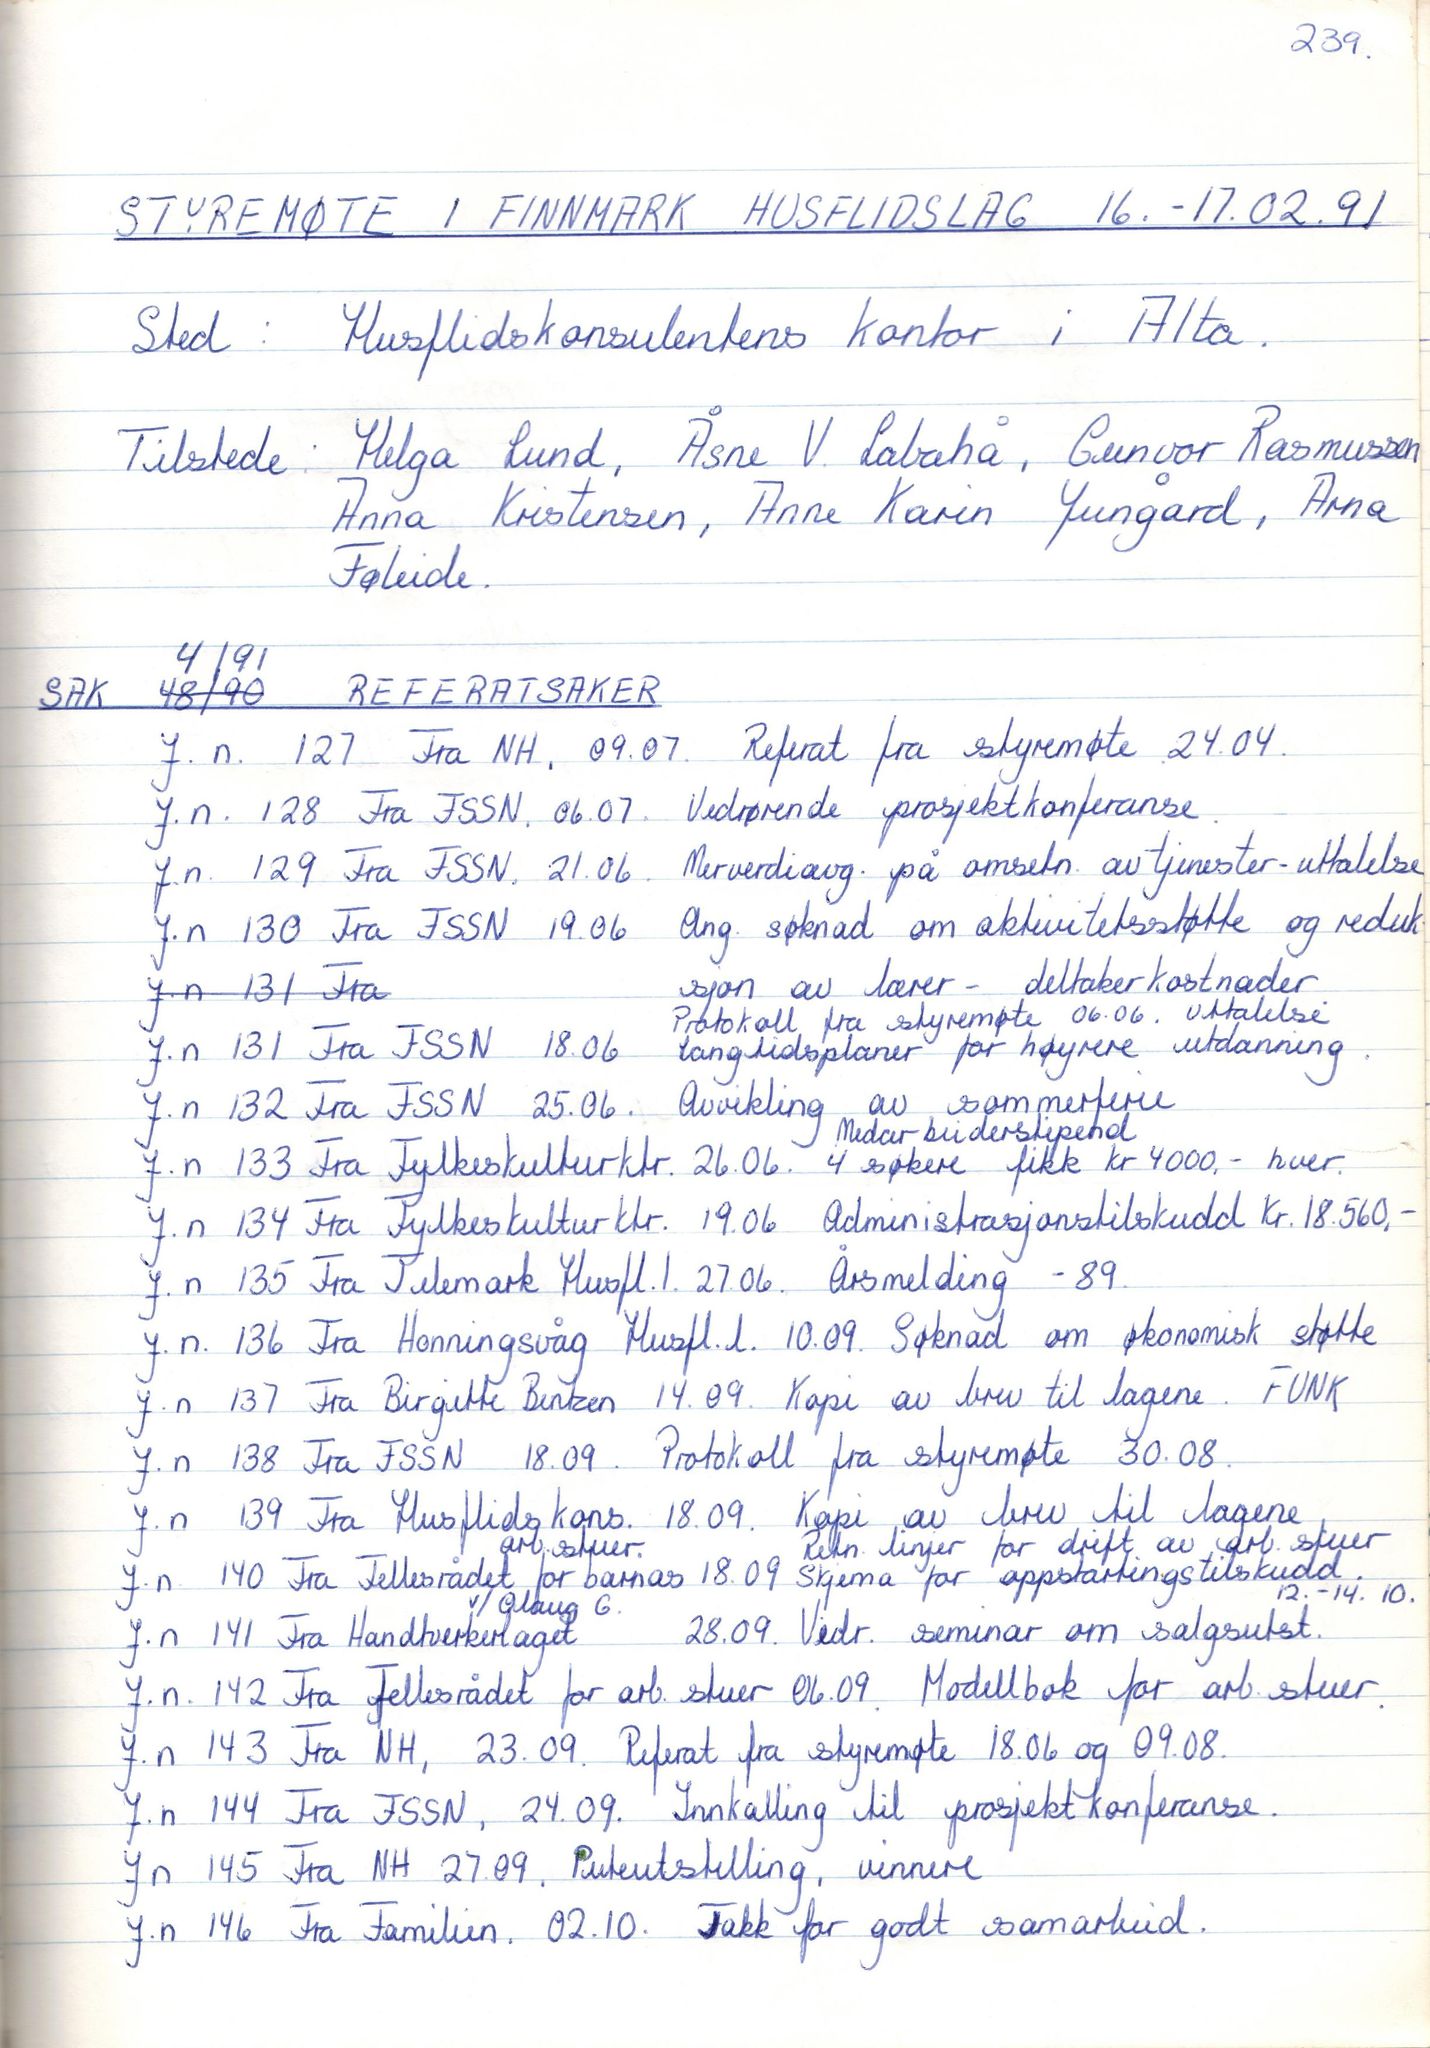 239.
STYREMØTE I FINNMARK HUSFLIDSLAG 16.-17.02.91
Sted: Husflidskonsulentens kontor i Alta.
Tilstede: Helga Lund, Åsne V. Labahå, Gunvor Rasmussen
Anna Kristensen, Anne Karin Jungård, Arna
Føleide.
4/91
SAK 48/90 REFERATSAKER
J.n. 127 Fra NH, 09.07. Referat fra styremøte 24.04.
J.n. 128 Fra FSSN, 06.07. Vedrørende prosjektkonferanse.
J.n. 129 Fra FSSN, 21.06. Merverdiavg. på omsetn. av tjenester-uttalelse
J.n 130 Fra FSSN 19.06 Ang. søknad om aktivitetsstøtte og reduk-
J.n 131 Fra sjon av lærer- deltakerkostnader
Protokoll fra styremøte 06.06. uttalelse
J.n 131 Fra FSSN 18.06 langtidsplaner for høyrere utdanning.
J.n 132 Fra FSSN 25.06. Avvikling av sommerferie
Medarbeiderstipend
J.n 133 Fra Fylkeskulturktr. 26.06. 4 søkere fikk kr 4000,- hver.
J.n 134 Fra Fylkeskulturktr. 19.06 Administrasjonstilskudd kr. 18.560,-
J.n 135 Fra Telemark Husfl.l. 27.06. Årsmelding -89.
J.n. 136 Fra Honningsvåg Husfl.l. 10.09. Søknad om økonomisk støtte
J.n 137 Fra Birgitte Bentzen 14.09. Kopi av brev til lagene. FUNK
J.n 138 Fra FSSN 18.09. Protokoll fra styremøte 30.08.
J.n 139 Fra Husflidskons. 18.09. Kopi av brev til lagene
arb.stuer. Retn.linjer for drift av arb.stuer
J.n. 140 Fra Fellesrådet for barnas 18.09 Skjema for oppstartningstilskudd.
v/Olaug G. 12.-14.10.
J.n 141 Fra Handtverkerlaget 28.09. Vedr. seminar om salgsutst.
J.n. 142 Fra Fellesrådet for arb.stuer 06.09. Modellbok for arb.stuer.
J.n 143 Fra NH, 23.09. Referat fra styremøte 18.06 og 09.08.
J.n 144 Fra FSSN, 24.09. Innkalling til prosjektkonferanse.
Jn 145 Fra NH 27.09. Puteutstilling, vinnere
J.n 146 Fra Familien. 02.10. Takk for godt samarbeid.